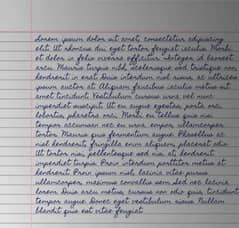 Lorem ipsum dolor sit amet, consectetur adipiscing
elit. Ut rhoncus dui eget tortor feugiat iaculis. Morbi
et dolor in felis viverra efficitur. Integer id laoreet
arcu. Mauris turpis nibh, scelerisque sed tristique non,
hendrerit in erat. Duis interdum nisl risus, ac ultricies
ipsum auctor at. Aliquam faucibus iaculis metus sit
amet tincidunt. Vestibulum cursus urna vel nunc
imperdiet suscipit. Ut eu augue egestas, porta arcu
lobortis, pharetra orci. Morbi eu tellus quis nisi
tempor accumsan nec eu urna.
tortor. Mauris quis fermentum augue. Phasellus ac
nisl hendrerit, fringilla enim aliquam, placerat odio.
Ut tortor nisi, pellentesque sed nisi at, hendrerit
imperdiet turpis. Proin interdum porttitor metus et
hendrerit. Proin ipsum nisl, lacinia vitae purus
ullamcorper, maximus convallis sem. Sed nec lacinia
lorem. Duis arcu metus, cursus non odio quis, tincidunt
tempor augue. Donec eget vestibulum risus. Nullam
blandit quis est vitae feugiat.